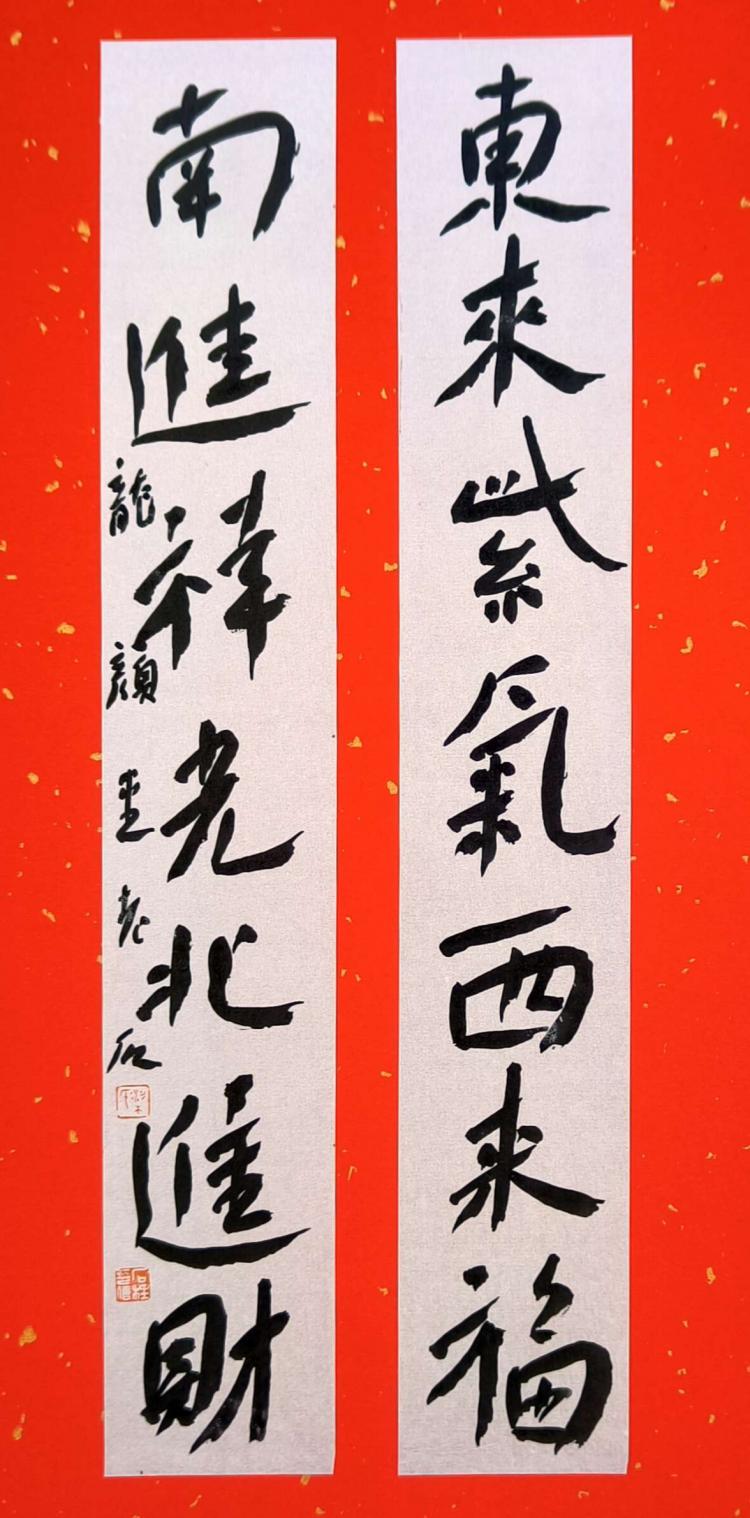 東來紫氣西来福
南進祥光北進財
龍顏
石